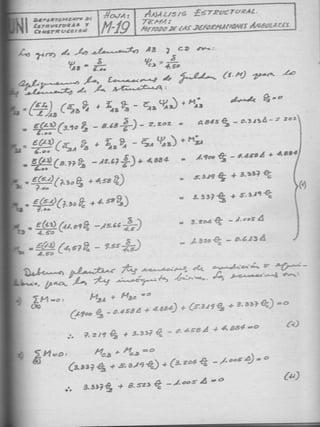 UNI DEPARTAMENTO DE ESTRUCTURAS Y CONSTRUCCION
HOJA: M-19
ANALISIS ESTRUCTURAL.
TEMA: METODO DE LAS DEFORMACIONES ANGULARES.
Los giros de los elementos AB y CD son:
Ψ_AB = δ/6.00 Ψ_CD = δ/4.50
Apliquemos las Ecuaciones de (S.M) para los
elementos de la estructura:
donde θ_A=0
= E(1.3)/6.00 (3.90 θ_B - 8.68 δ/6) - 2.202 = 0.845 θ_B - 0.313 δ - 2.202
= E(1.3)/6.00 (8.77 θ_B - 12.67 δ/6) + 4.884 = 1.900 θ_B - 0.458 δ + 4.884
= E(5.1)/7.00 (7.30 θ_B + 4.58 θ_C) = 5.319 θ_B + 3.337 θ_C
= E(5.1)/7.00 (7.30 θ_C + 4.58 θ_B) = 3.337 θ_B + 5.319 θ_C
= E(1.3)/4.50 (11.09 θ_C - 15.66 δ/4.5) = 3.204 θ_C - 1.005 δ
= E(1.3)/4.50 (4.57 θ_C - 9.55 δ/4.5) = 1.320 θ_C - 0.613 δ
(I)
Debemos plantear las ecuaciones de condición o equili-
brio, para las incógnitas básicas. Las ecuaciones son:
ΣM=0: M_BA + M_BC = 0
(1.900 θ_B - 0.458 δ + 4.884) + (5.319 θ_B + 3.337 θ_C) = 0
∴ 7.219 θ_B + 3.337 θ_C - 0.458 δ + 4.884 = 0 (i)
ΣM=0: M_CB + M_CD = 0
(3.337 θ_B + 5.319 θ_C) + (3.204 θ_C - 1.005 δ) = 0
∴ 3.337 θ_B + 8.523 θ_C - 1.005 δ = 0 (ii)